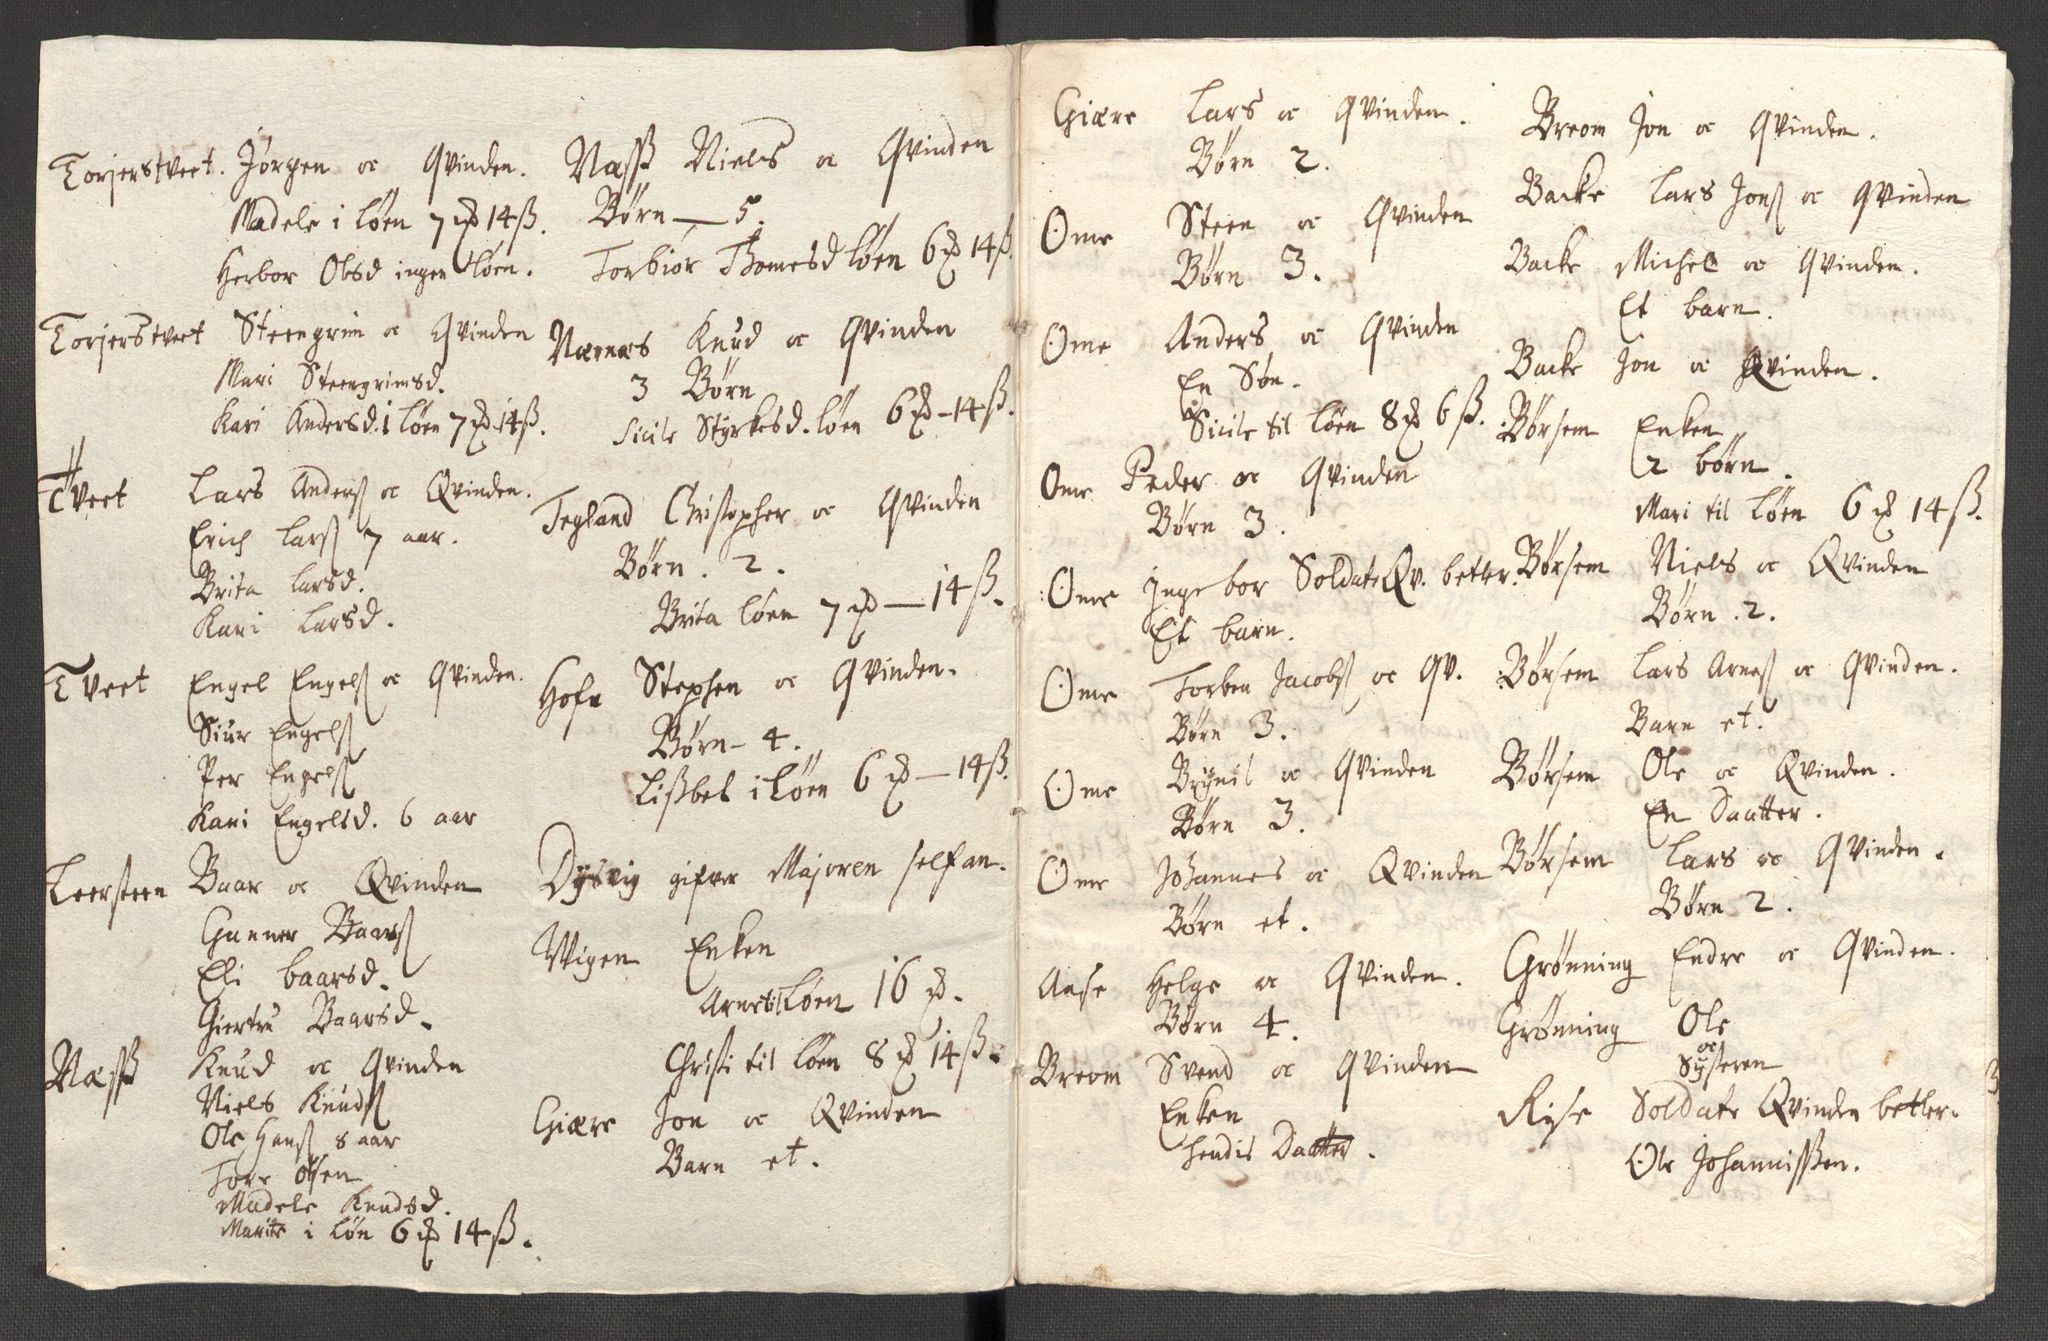 Torjerstveet. Jörgen oc Qvinden.
Madele i löen 7 mk 14 ß.
Herbor Olsd ingen löen.
Torjerstveet Steengrim oc Qvinden
Mari Steengrimsd.
Kari Andersd. i löen 7 mk 14 ß.
Tveet Lars Anderß oc Qvinden.
Erich Larß 7 aar.
Brita Larsd.
Kari Larsd.
Tveet Engel Engelß oc Qvinden.
Siur Engelß
Per Engelß
Kari Engelsd. 6 aar
Leersteen Baar oc Qvinden
Gunner Baarß
Eli baarsd.
Giertru Baarsd.
Næsß Knud oc Qvinden
Niels Knudß
Ole Hanß 8 aar
Tore Olsen
Madele Knudsd.
Marite i lön 6 mk 14 ß.
Næsß Niels oc Qvinden
Börn — 5.
Torbiör Thomesd löen 6 mk 14 ß.
Nærnæs Knud oc Qvinden
3 Börn
Sicile Styrkesd. löen 6 mk - 14 ß.
Tegland Christopher oc Qvinden
Börn. 2.
Brita löen 7 mk — 14 ß.
Hofn Stephen oc Qvinden.
Börn - 4.
Lißbet i löen 6 mk — 14 ß.
Dysvig gifver Majoren self an.
Wigen Enken
Arne til löen 16 mk.
Christi til löen 8 mk 14 ß.
Giære Jon oc Qvinden
Barn et.
Giære Lars oc Qvinden.
Börn 2.
Ome Steen oc Qvinden
Börn 3.
Ome Anders oc Qvinden
En Sön.
Sicile til löen 8 mk 6 ß.
Ome Peder oc Qvinden
Börn 3.
Ome Ingebor Soldate Qv. betler.
Et barn.
Ome Torben Jacobß oc Qv.
Börn 3.
Ome Brynil oc Qvinden
Börn 3.
Ome Johannes oc Qvinden
Börn et.
Aase Helge oc Qvinden.
Börn 4.
Breom Svend oc Qvinden
Enken
hendis Datter.
Breom Jon oc Qvinden.
Backe Lars Jonß oc Qvinden
Backe Michel oc Qvinden.
Et barn.
Backe Jon oc Qvinden.
Börsem Enken
2 börn.
Mari til löen 6 mk 14 ß.
Börsem Niels oc Qvinden
Börn. 2.
Börsem Lars Arneß oc Qvinden.
Barn et.
Börsem Ole oc Qvinden.
En Daatter.
Börsem Lars oc Qvinden.
Börn 2.
Grönning Endre oc Qvinden.
Grönning Ole
oc
Systeren
Rise Soldate Qvinden betler.
Ole Johannisßen.
3